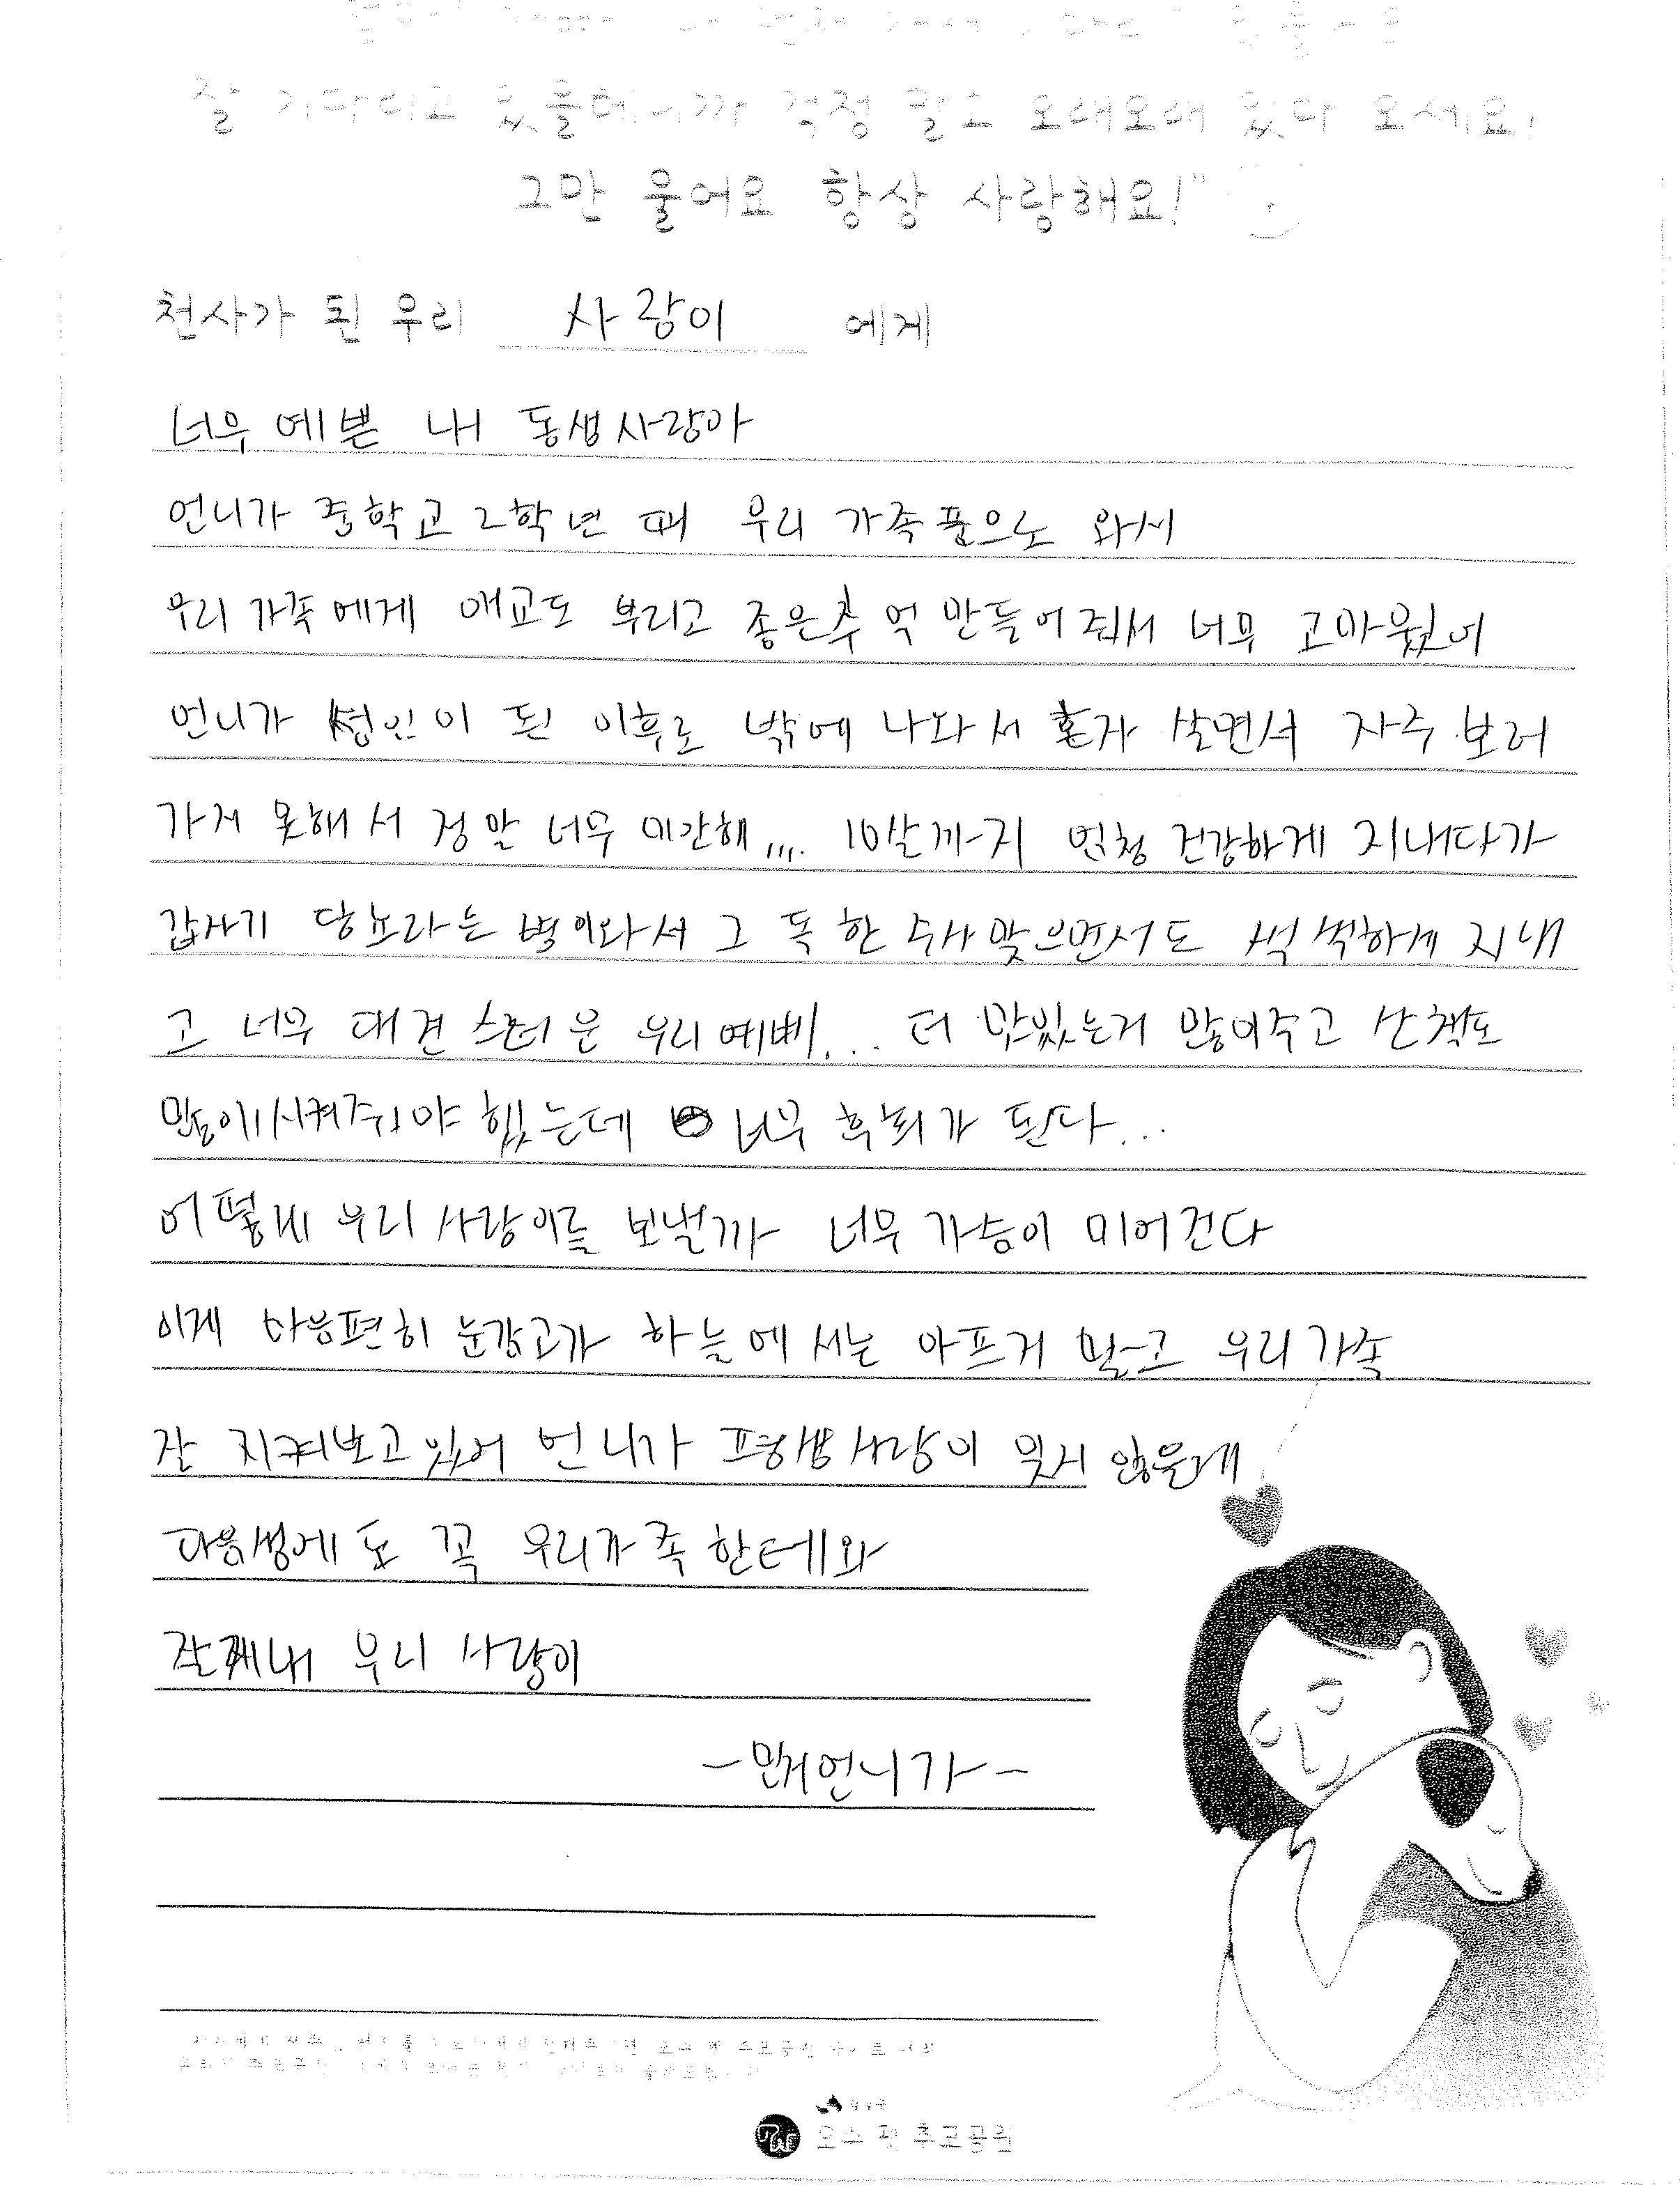 잘 기다리고 있을테니까 걱정 말고 오래오래 있다 오세요!
그만 울어요 항상 사랑해요!"
천사가 된 우리 사랑이 에게
너무 예쁜 내 동생 사랑아
언니가 중학교 2학년 때 우리 가족품으로 와서
우리 가족에게 애교도 부리고 좋은추억 만들어줘서 너무 고마웠어
언니가 성인이 된 이후로 밖에 나와서 혼자 살면서 자주 보러
가지 못해서 정말 너무 미안해,,,. 10살까지 엄청 건강하게 지내다가
갑자기 당뇨라는 병이와서 그 독한 주사 맞으면서도 씩씩하게 지내
고 너무 대견스러운 우리 예삐... 더 맛있는거 많이주고 산책도
많이시켜줘야 했는데 너무 후회가 된다...
어떻게 우리 사랑이를 보낼까 너무 가슴이 미어진다
이제 마음편히 눈감고가 하늘에서는 아프지 말고 우리 가족
잘 지켜보고 있어 언니가 평생 사랑이 잊지 않을게
다음생에도 꼭 우리가족 한테와
잘지내 우리 사랑이
언니가-
오스 펫 추모공원